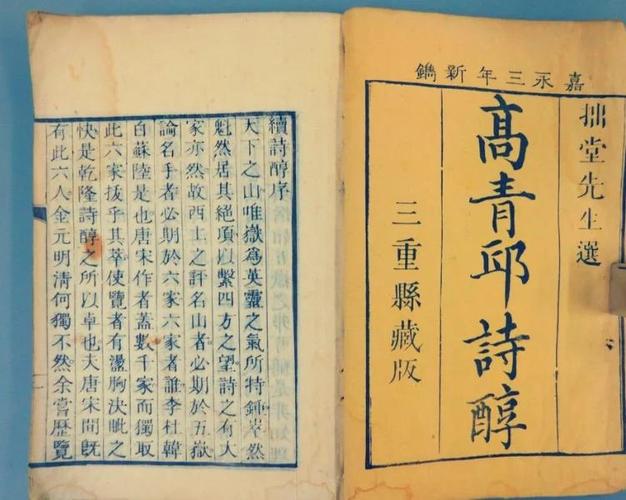 嘉永三年新鐫
拙堂先生選
高青邱詩醇
三重縣藏版
續詩醇序
天下之山唯嶽爲英靈之氣所特鍾崒然
魁然居其絕項以繫四方之望詩之有大
家亦然故西土之評名山者必期於五嶽
論名手者必期於六家六家者誰李杜韓
白蘇陸是也唐宋作者蓋數千家而獨取
此六家拔乎其萃使覽者有盪胸決眦之
快是乾隆詩醇之所以卓也夫唐宋間既
有此六人金元明清何獨不然余嘗歷覽